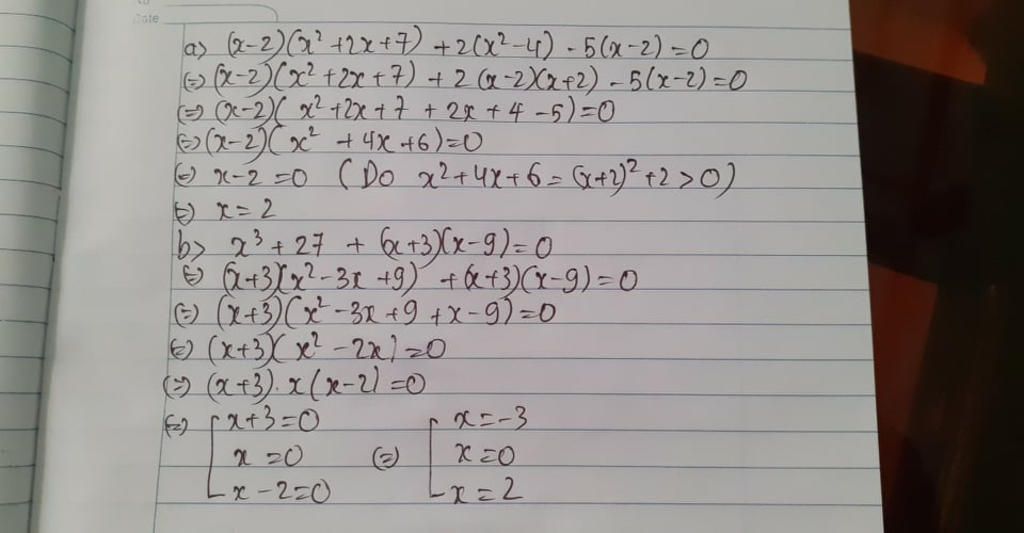 Date
a> (x-2)(x² +2x+7) +2(x²-4) -5(x-2)=0
(=) (x-2)(x²+2x+7) + 2 (x-2)(x+2) -5(x-2)=0
(=) (x-2)( x²+2x+7 +2x+4 -5)=0
(=) (x-2)( x² +4x+6)=0
(=) x-2=0 (Do x²+4x+6=(x+2)²+2>0)
(=) x=2
b> x³+27 + (x+3)(x-9)=0
(=) (x+3)(x²-3x+9) +(x+3)(x-9)=0
(=) (x+3)(x²-3x+9+x-9)=0
(=) (x+3)( x² -2x)=0
(=) (x+3).x(x-2)=0
(=) [ x+3=0 [ x=-3
x=0 (=) x=0
x-2=0 x=2